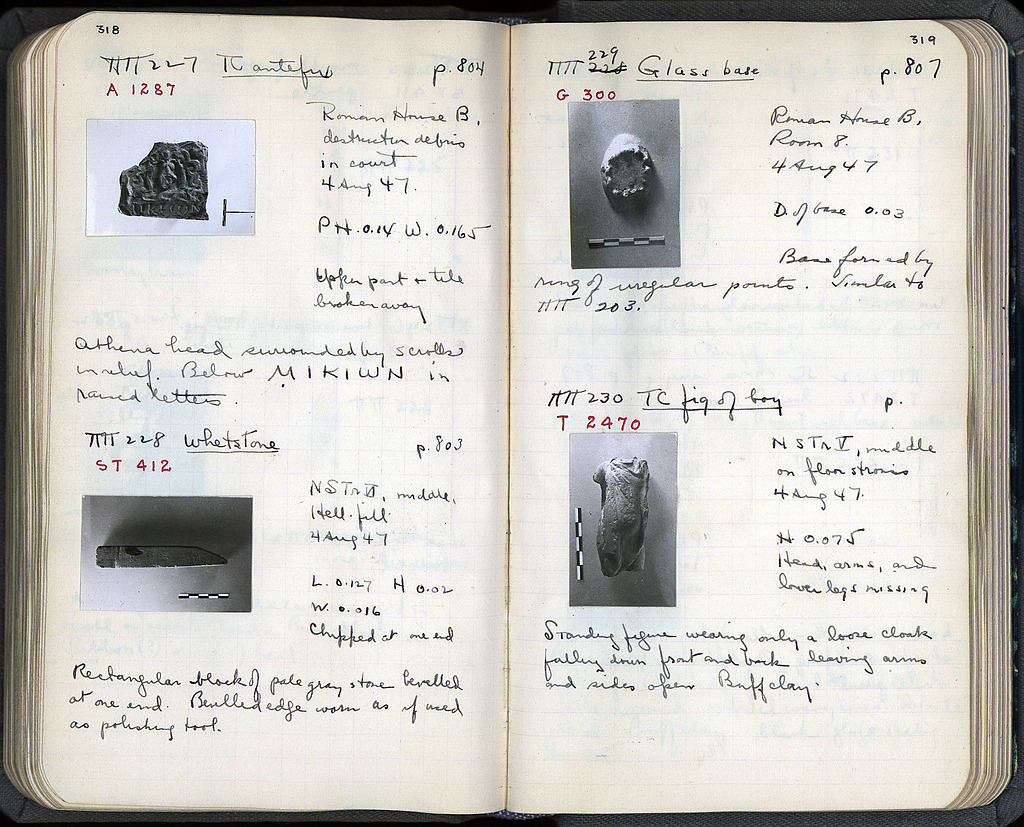 318
ΠΠ 227 TC antefix p. 804
A 1287
Roman House B,
destruction debris
in court
4 Aug 47.
P H. 0.14 W. 0.165
Upper part + tile
broken away
Athena head surrounded by scrolls
in relief. Below MIKIWN in
raised letters.
ΠΠ 228 Whetstone p. 803
ST 412
NSTr VI, middle,
Hell. fill
4 Aug 47
L. 0.127 H 0.02
W. 0.016
Chipped at one end
Rectangular block of pale gray stone bevelled
at one end. Bevelled edge worn as if used
as polishing tool.
319
229
ΠΠ 228 Glass base p. 807
G 300
Roman House B,
Room 8.
4 Aug 47
D. of base 0.03
Base formed by
ring of irregular points. Similar to
ΠΠ 203.
ΠΠ 230 TC fig of boy p.
T 2470
NSTr V, middle
on floor strosis
4 Aug 47.
H 0.075
Head, arms, and
lower legs missing
Standing figure wearing only a loose cloak
falling down front and back leaving arms
and sides open Buff clay.